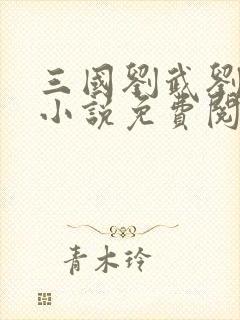 三國劉武劉
小說免費閱
青木玲